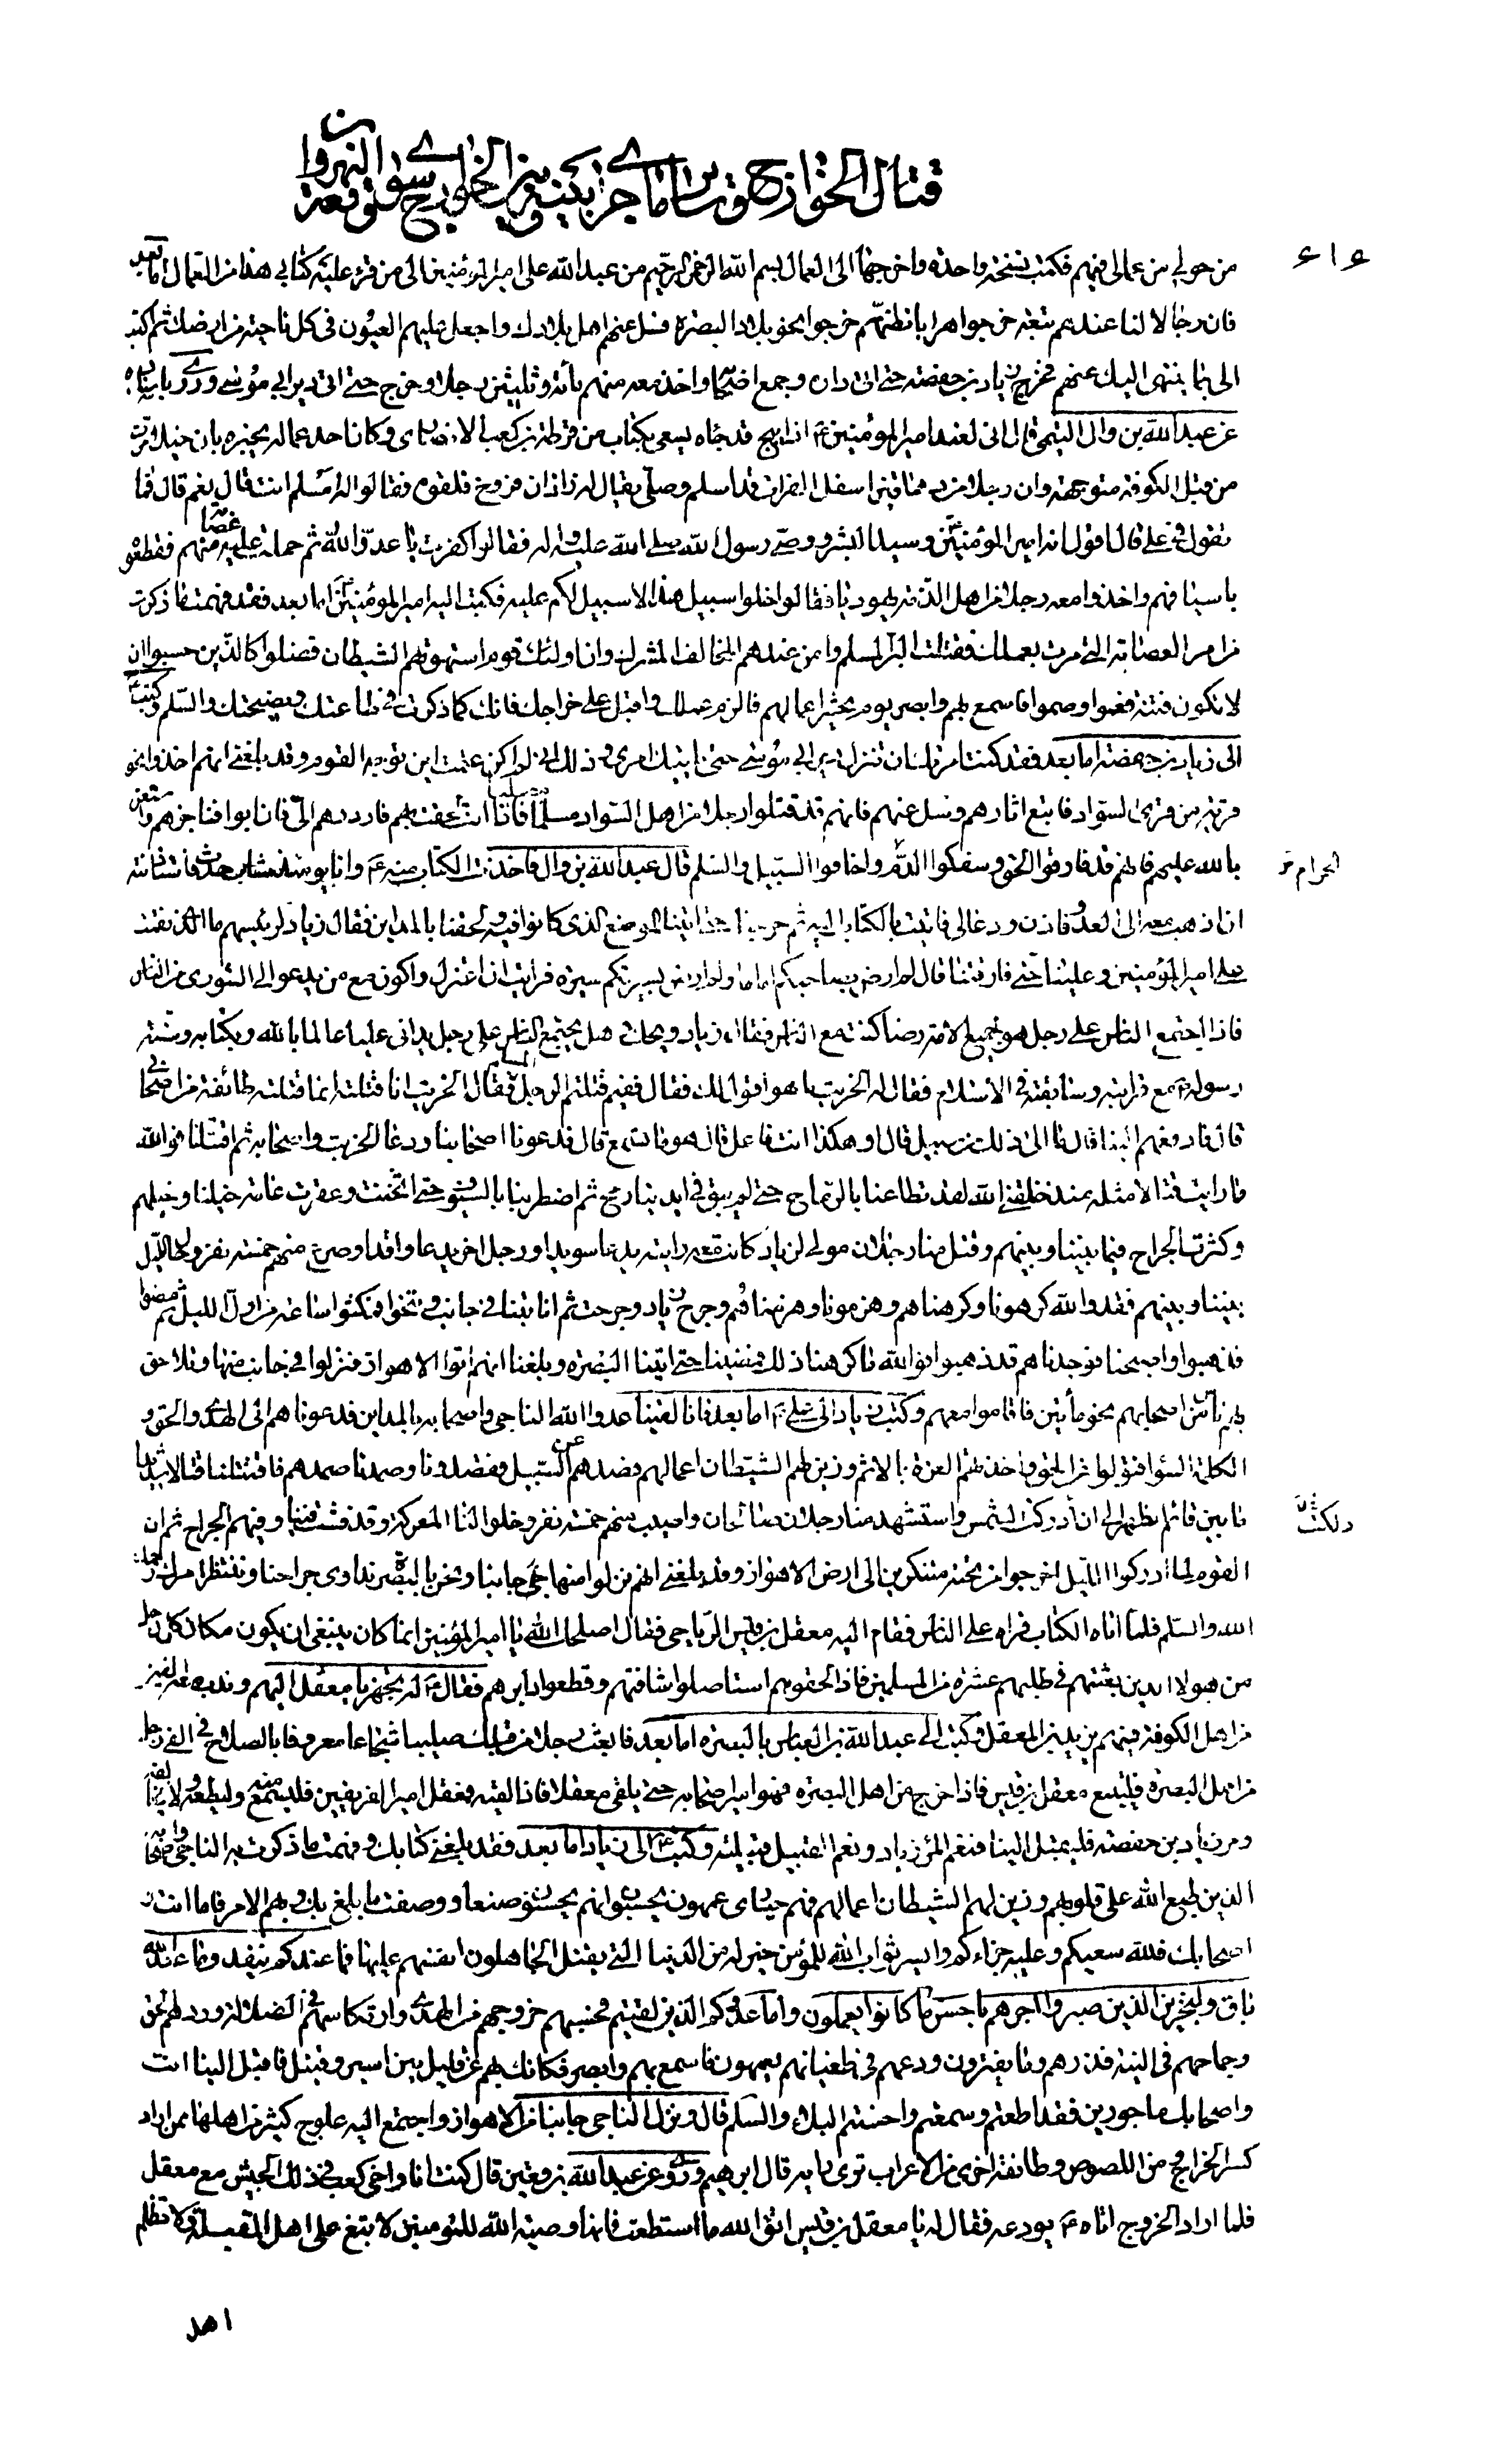 قتال الخوارج وساير ما جرى بينه وبين الخوارج سوى وقعة النهروان
٤١٤
من حولي من عمالى فيهم فكتب نسخة واحدة واخرجها الى العمال بسم الله الرحمن الرحيم من عبد الله على امير المؤمنين الى من قرء عليه كتابي هذا من العمال اما بعد
فان رجالا لنا عندهم تبعة خرجوا هرابا نظنهم خرجوا نحو بلاد البصرة فسل عنهم اهل بلادك واجعل عليهم العيون فى كل ناحية من ارضك ثم اكتب
الى بما ينتهى اليك عنهم فخرج زياد بن حفصة حتى اتى داره وجمع اصحابه واخذ معه منهم مائة وثلثين رجلا وخرج حتى اتى دير ابي موسى وروى باسناده
عن عبد الله بن وال التيمى قال انى لعند امير المؤمنين ع اذا بيج قد جاءه يسعى بكتاب من قرظة بن كعب الانصارى وكان احد عماله يخبره بان خيلا مرت
من قبل الكوفة متوجهة وان رجلا من دهاقين اسفل الفرات قد اسلم وصلى يقال له زاذان فروخ فلقوه فقالوا له امسلم انت قال نعم قال فما
تقول فى على قال اقول انه امير المؤمنين ع وسيد البشر ووصى رسول الله صلى الله عليه واله فقالوا كفرت يا عدو الله ثم حملت عليه عصابة منهم فقطعوه
باسيافهم واخذوا معه رجلا من اهل الذمة يهوديا فقالوا خلوا سبيل هذا لا سبيل لكم عليه فكتب اليه امير المؤمنين ع اما بعد فقد فهمت ما ذكرت
من امر العصابة التى مرت بعملك فقتلت البر المسلم وامن عندهم المخالف المشرك وان اولئك قوم استهويهم الشيطان فضلوا كالذين حسبوا ان
لا تكون فتنة فعموا وصموا فاسمع بهم وابصر يوم يحشر اعمالهم فالزم عملك واقبل على خراجك فانك كما ذكرت فى طاعتك ونصيحتك والسلم وكتب ع
الى زياد بن حفصة اما بعد فقد كنت امرتك ان تنزل دير ابي موسى حتى ياتيك امرى وذلك انى لم اكن علمت اين توجه القوم وقد بلغنى انهم اخذوا نحو
قرية من قرى السواد فاتبع اثارهم وسل عنهم فانهم قد قتلوا رجلا من اهل السواد مسلما مصليا فاذا انت لحقت بهم فارددهم الى فان ابوا فناجزهم واستعن
بالله عليهم فانهم قد فارقوا الحق وسفكوا الدم واخافوا السبيل والسلم قال عبد الله بن وال فاخذت الكتاب منه ع وانا يومئذ شاب حدث فاستاذنته
الحرام خ
ان اذهب معه الى العدو فاذن ودعا لى فاتيت بالكتاب اليه ثم خرجنا حتى اتينا الموضع الذى كانوا فيه فلحقنا بالمداين فقال زياد لرئيسهم ما الذى نقمت
على امير المؤمنين وعلينا حتى فارقتنا قال لم ارض بصاحبكم اماما ولم ارض بسيرتكم سيرة فرايت ان اعتزل واكون مع من يدعو الى الشورى من الناس
فاذا اجتمع الناس على رجل هو لجميع الامة رضا كنت مع الناس فقال زياد ويحك هل يجتمع الناس على رجل يدانى عليا عالما بالله وبكتابه وسنة
رسوله ص مع قرابته وسابقته فى الاسلام فقال له الخريت ما هو اقول لك فقال ففيم قتلتم الرجل المسلم فقال الخريت ما انا قتلته انما قتلته طائفة من اصحابى
قال فادفعهم الينا قال ما الى ذلك من سبيل قال او هكذا انت فاعل قال هو ما تسمع قال فدعونا اصحابنا ودعا الخريت واصحابه ثم اقتتلنا فوالله
ما رايت قتالا مثله منذ خلقنى الله لقد تطاعنا بالرماح حتى لم يبق فى ايدينا رمح ثم اضطربنا بالسيوف حتى انحنت وعقرت عامة خيلنا وخيلهم
وكثرت الجراح فيما بيننا وبينهم وقتل منا رجلان مولى لزياد كانت معه رايته يدعى سويدا ورجل اخر يدعى واقدا وصرع منهم خمسة نفر وحال الليل
بيننا وبينهم فقد والله كرهونا وكرهناهم وهزمونا وهزمناهم وجرح زياد وجرحت ثم انا بتنا فى جانب وتنحوا فمكثوا ساعة من اول الليل ثم مضوا
فذهبوا واصبحنا فوجدناهم قد ذهبوا فوالله ما كرهنا ذلك فمضينا حتى اتينا البصرة وبلغنا انهم اتوا الاهواز فنزلوا فى جانب منها وتلاحق
بهم ناس من اصحابهم نحو مأتين فاقاموا معهم وكتب زياد الى على ع اما بعد فانا لقينا عدو الله الناجى واصحابه بالمداين فدعوناهم الى الهدى والحق و
الكلمة السواء فتولوا عن الحق واخذتهم العزة بالاثم وزين لهم الشيطان اعمالهم فصدهم عن السبيل وقصدونا وصمدنا صمدهم فاقتتلنا قتالا شديدا
ما بين قائم الظهر الى ان ادركت الشمس واستشهد منا رجلان صالحان واصيب منهم خمسة نفر وخلوا لنا المعركة وقد فشت فينا وفيهم الجراح ثم ان
دلكت خ
القوم لما ادركوا الليل خرجوا من تحته متنكرين الى ارض الاهواز وقد بلغنى انهم نزلوا منها جانبا ونحن بالبصرة نداوى جراحنا وننتظر امرك رحمك
الله والسلم فلما اتاه الكتاب قراه على الناس فقام اليه معقل بن قيس الرياحى فقال اصلحك الله يا امير المؤمنين انما كان ينبغى ان يكون مكان كل رجل
من هؤلاء الذين بعثتهم فى طلبهم عشرة من المسلمين فاذا لحقوهم استاصلوا شافتهم وقطعوا دابرهم فقال ع له تجهز يا معقل اليهم وندب معه الفين
من اهل الكوفة فيهم يزيد بن المعقل وكتب الى عبد الله بن العباس بالبصرة اما بعد فابعث رجلا من قبلك صليبا شجاعا معروفا بالصلاح فى الفى رجل
من اهل البصرة فليتبع معقل بن قيس فاذا خرج من اهل البصرة فهو امير اصحابه حتى يلقى معقلا فاذا لقيه فمعقل امير الفريقين فليسمع منه وليطعه ولا يخالفه
ومر زياد بن حفصة فليقبل الينا فنعم المرء زياد ونعم القبيل قبيلته وكتب ع الى زياد اما بعد فقد بلغنى كتابك وفهمت ما ذكرت به الناجى واصحابه
الذين طبع الله على قلوبهم وزين لهم الشيطان اعمالهم فهم حيارى عمهون يحسبون انهم يحسنون صنعا ووصفت ما بلغ بك وبهم الامر فاما انت و
اصحابك فلله سعيكم وعليه جزاءكم وايسر ثواب الله للمؤمن خير له من الدنيا التى يقتل الجاهلون انفسهم عليها فما عندكم ينفد وما عند الله
باق ولنجزين الذين صبروا اجرهم باحسن ما كانوا يعملون واما عدوكم الذين لقيتم فحسبهم خروجهم من الهدى وارتكاسهم فى الضلالة وردهم الحق
وجماحهم فى التيه فذرهم وما يفترون ودعهم فى طغيانهم يعمهون فاسمع بهم وابصر فكانك بهم عن قليل بين اسير وقتيل فاقبل الينا انت
واصحابك ماجورين فقد اطعتم وسمعتم واحسنتم البلاء والسلم قال ونزل الناجى جانبا من الاهواز واجتمع اليه علوج كثير من اهلها ممن اراد
كسر الخراج ومن اللصوص وطائفة اخرى من الاعراب ترى رايه قال ابرهيم وروى عن عبد الله بن قعين قال كنت انا واخى كعب فى ذلك الجيش مع معقل
فلما اراد الخروج اتاه ع يودعه فقال له يا معقل بن قيس اتق الله ما استطعت فانها وصية الله للمؤمنين لا تبغ على اهل القبلة ولا تظلم
اهل